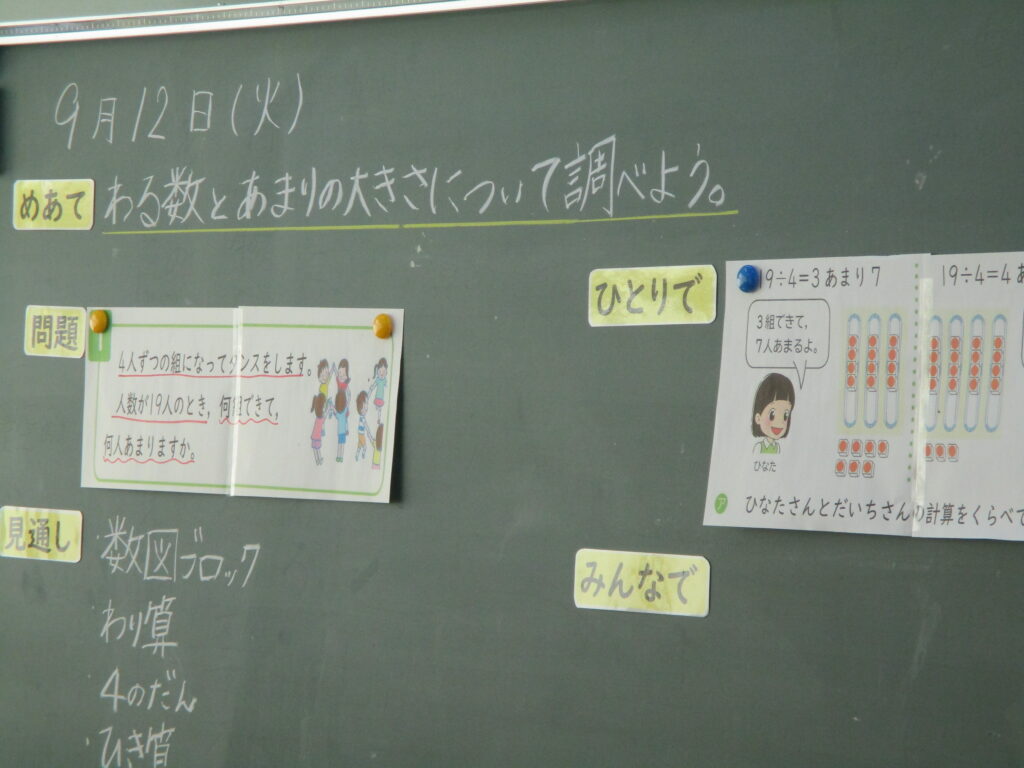 9月12日(火)
めあて
わる数とあまりの大きさについて調べよう。
問題
1
4人ずつの組になってダンスをします。
人数が19人のとき，何組できて，
何人あまりますか。
見通し
数図ブロック
わり算
4のだん
ひき算
ひとりで
9÷4=3あまり7
3組できて，
7人あまるよ。
ひなた
19÷4=4あ
ア ひなたさんとだいちさんの計算をくらべて
みんなで